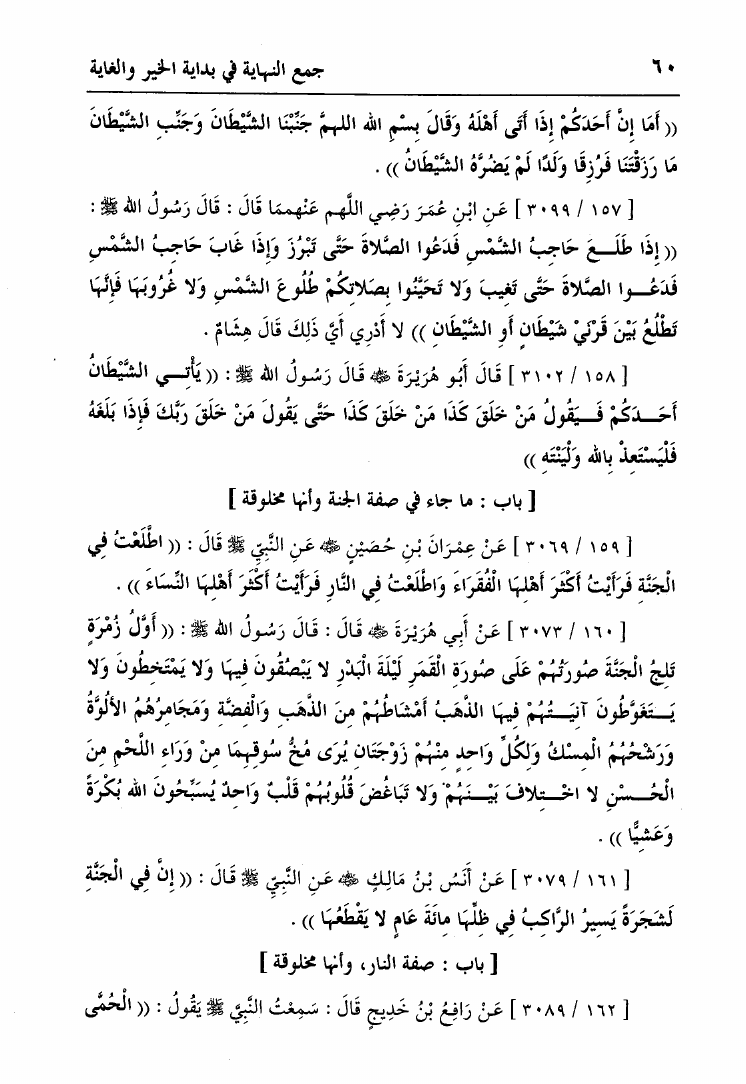 ٦٠ جمع النهاية في بداية الخير والغاية
(( أَمَا إِنَّ أَحَدَكُمْ إِذَا أَتَى أَهْلَهُ وَقَالَ بِسْمِ الله اللهمَّ جَنِّبْنَا الشَّيْطَانَ وَجَنِّبِ الشَّيْطَانَ
مَا رَزَقْتَنَا فَرُزِقَا وَلَدًا لَمْ يَضُرَّهُ الشَّيْطَانُ )) .
[ ١٥٧ / ٣٠٩٩ ] عَنِ ابْنِ عُمَرَ رَضِي اللَّهم عَنْهممَا قَالَ : قَالَ رَسُولُ الله ﷺ :
(( إِذَا طَلَـعَ حَاجِبُ الشَّمْسِ فَدَعُوا الصَّلاةَ حَتَّى تَبْرُزَ وَإِذَا غَابَ حَاجِبُ الشَّمْسِ
فَدَعُـوا الصَّلاةَ حَتَّى تَغِيبَ وَلا تَحَيَّنُوا بِصَلاتِكُمْ طُلُوعَ الشَّمْسِ وَلا غُرُوبَهَا فَإِنَّهَا
تَطْلُعُ بَيْنَ قَرْنَيْ شَيْطَانٍ أَوِ الشَّيْطَانِ )) لا أَدْرِي أَيَّ ذَلِكَ قَالَ هِشَامٌ .
[ ١٥٨ / ٣١٠٢ ] قَالَ أَبُو هُرَيْرَةَ ﷺ قَالَ رَسُولُ الله ﷺ : (( يَأْتِـي الشَّيْطَانُ
أَحَـدَكُمْ فَـيَقُولُ مَنْ خَلَقَ كَذَا مَنْ خَلَقَ كَذَا حَتَّى يَقُولَ مَنْ خَلَقَ رَبَّكَ فَإِذَا بَلَغَهُ
فَلْيَسْتَعِذْ بِالله وَلْيَنْتَهِ ))
[ باب : ما جاء في صفة الجنة وأنها مخلوقة ]
[ ١٥٩ / ٣٠٦٩ ] عَنْ عِمْرَانَ بْنِ حُصَيْنٍ ﷺ عَنِ النَّبِيِّ ﷺ قَالَ : (( اطَّلَعْتُ فِي
الْجَنَّةِ فَرَأَيْتُ أَكْثَرَ أَهْلِهَا الْفُقَرَاءَ وَاطَّلَعْتُ فِي النَّارِ فَرَأَيْتُ أَكْثَرَ أَهْلِهَا النِّسَاءَ )) .
[ ١٦٠ / ٣٠٧٣ ] عَنْ أَبِي هُرَيْرَةَ ﷺ قَالَ : قَالَ رَسُولُ الله ﷺ : (( أَوَّلُ زُمْرَةٍ
تَلِجُ الْجَنَّةَ صُورَتُهُمْ عَلَى صُورَةِ الْقَمَرِ لَيْلَةَ الْبَدْرِ لا يَبْصُقُونَ فِيهَا وَلا يَمْتَخِطُونَ وَلا
يَـتَغَوَّطُونَ آنِيَـتُهُمْ فِيهَا الذَّهَبُ أَمْشَاطُهُمْ مِنَ الذَّهَبِ وَالْفِضَّةِ وَمَجَامِرُهُمُ الأَلُوَّةُ
وَرَشْحُهُمُ الْمِسْكُ وَلِكُلِّ وَاحِدٍ مِنْهُمْ زَوْجَتَانِ يُرَى مُخُّ سُوقِهِمَا مِنْ وَرَاءِ اللَّحْمِ مِنَ
الْحُـسْنِ لا اخْـتِلافَ بَيْـنَهُمْ وَلا تَبَاغُضَ قُلُوبُهُمْ قَلْبٌ وَاحِدٌ يُسَبِّحُونَ الله بُكْرَةً
وَعَشِيًّا )) .
[ ١٦١ / ٣٠٧٩ ] عَنْ أَنَسُ بْنُ مَالِكٍ ﷺ عَنِ النَّبِيِّ ﷺ قَالَ : (( إِنَّ فِي الْجَنَّةِ
لَشَجَرَةً يَسِيرُ الرَّاكِبُ فِي ظِلِّهَا مِائَةَ عَامٍ لا يَقْطَعُهَا )) .
[ باب : صفة النار، وأنها مخلوقة ]
[ ١٦٢ / ٣٠٨٩ ] عَنْ رَافِعُ بْنُ خَدِيجٍ قَالَ : سَمِعْتُ النَّبِيَّ ﷺ يَقُولُ : (( الْحُمَّى